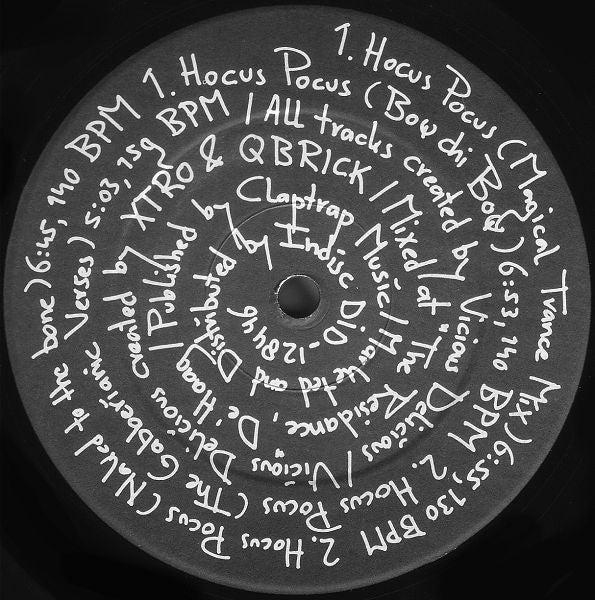 1. Hocus Pocus (Magical Trance Mix) 6:55, 130 BPM 2. Hocus Pocus (Naked to the bone) 6:45, 140 BPM
1. Hocus Pocus (Bow chi Bow) 6:53, 140 BPM 2. Hocus Pocus (The Gabberianc Verses) 5:03, 159 BPM
/ All tracks created by Vicious Delicious / Vicious Delicious created by XTRO & QBRICK
/ Mixed at "The Residance", De' Haag / Published by Claptrap Music
/ Marketed and Distributed by Indisc DiD-128446